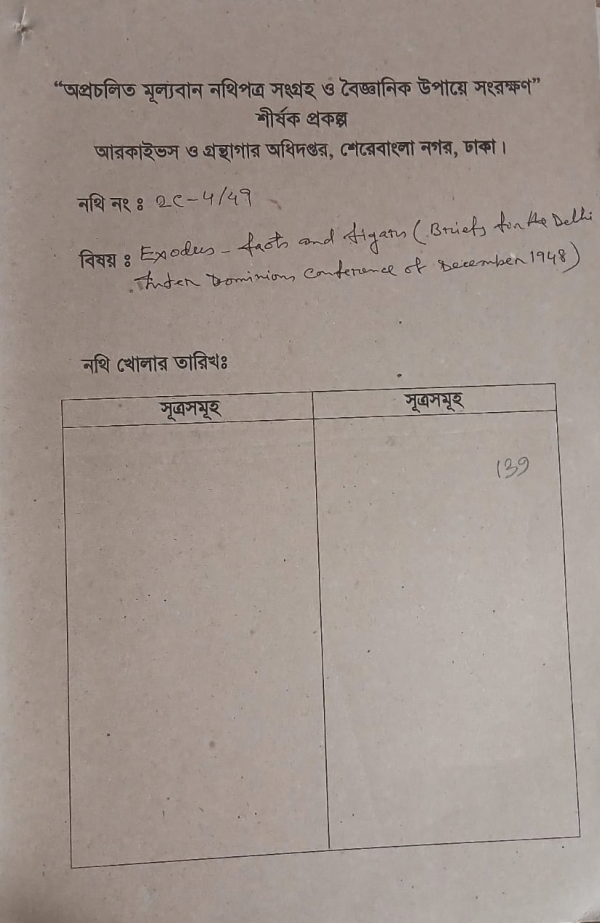 “অপ্রচলিত মূল্যবান নথিপত্র সংগ্রহ ও বৈজ্ঞানিক উপায়ে সংরক্ষণ”
শীর্ষক প্রকল্প
আরকাইভস ও গ্রন্থাগার অধিদপ্তর, শেরেবাংলা নগর, ঢাকা।
নথি নং ঃ 2C-4/49
বিষয় ঃ Exodus - facts and figars (Briefs for the Delhi
Inter Dominion Conference of December 1948)
নথি খোলার তারিখঃ
সূত্রসমূহ সূত্রসমূহ
139